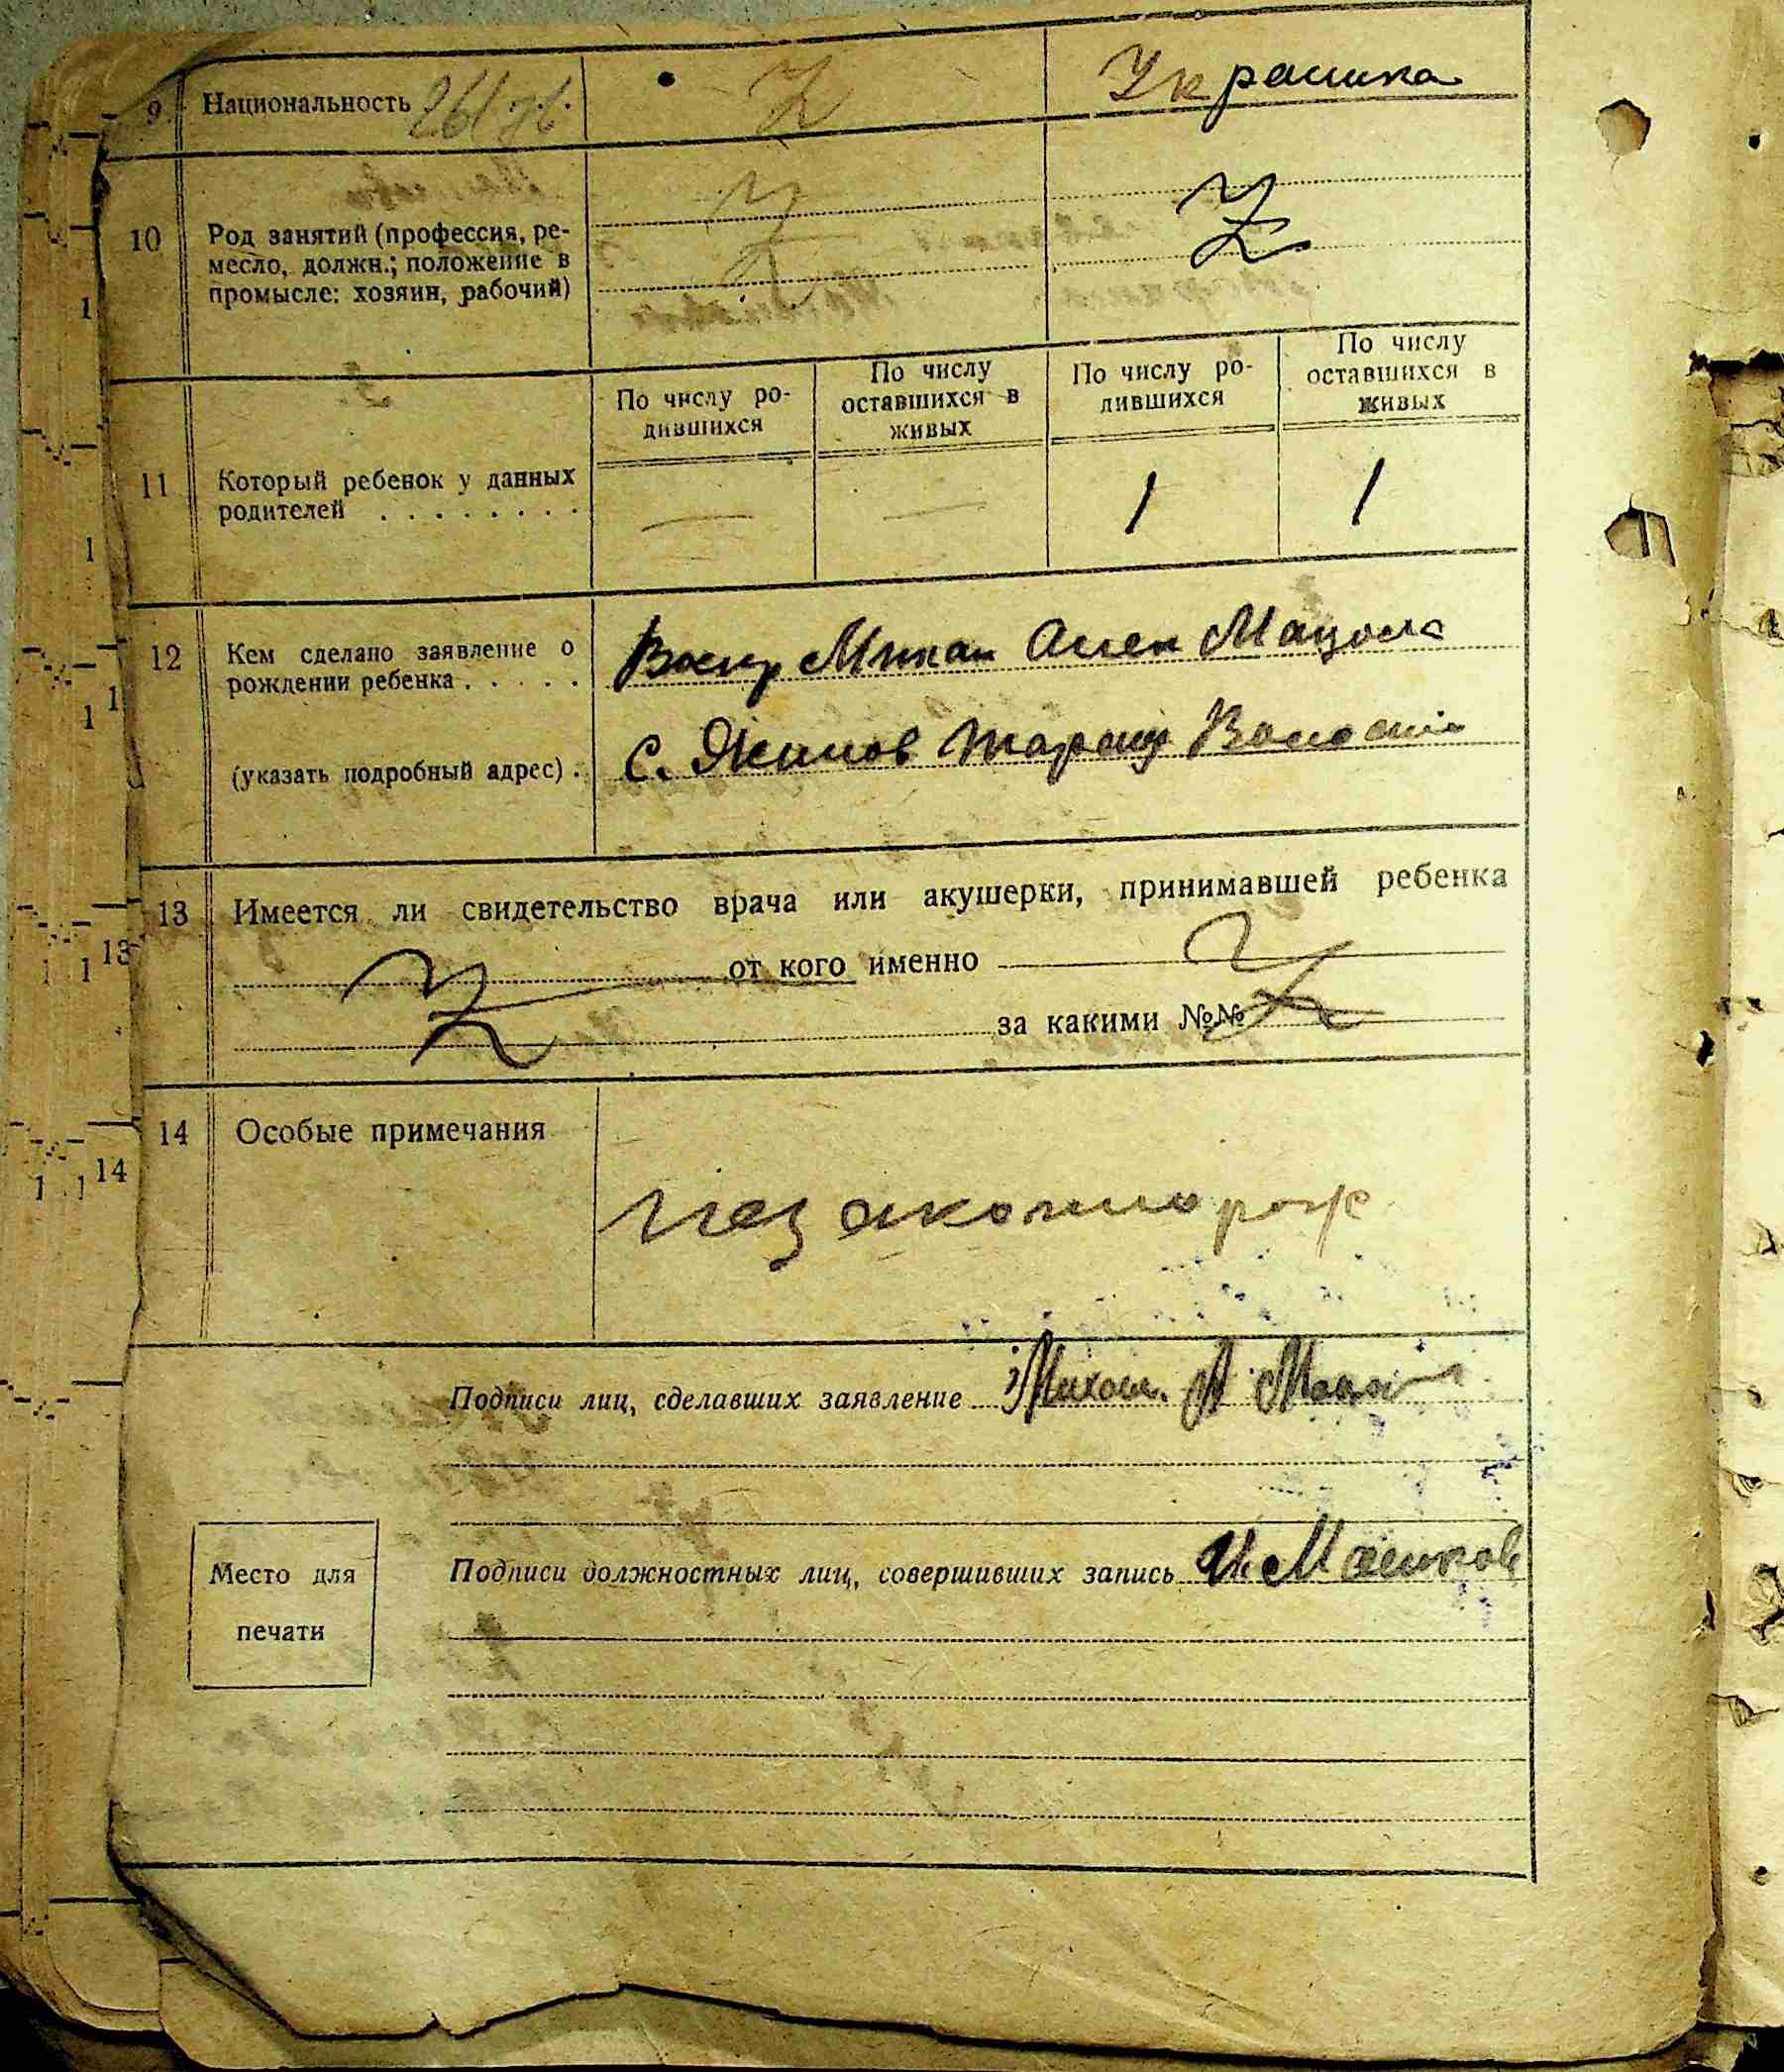 9 Национальность
10 Род занятий (профессия, ре-
месло, должн.; положение в
промысле: хозяин, рабочий)
По числу ро-
дившихся
По числу
оставшихся в
живых
По числу ро-
дившихся
По числу
оставшихся в
живых
11 Который ребенок у данных
родителей . . . . . . . .
— — 1 1
12 Кем сделано заявление о
рождении ребенка . . . . .
(указать подробный адрес) .
С.
13 Имеется ли свидетельство врача или акушерки, принимавшей ребенка
от кого именно
за какими №№
14 Особые примечания
незаконнорож
Подписи лиц, сделавших заявление
Подписи должностных лиц, совершивших запись
Место для
печати